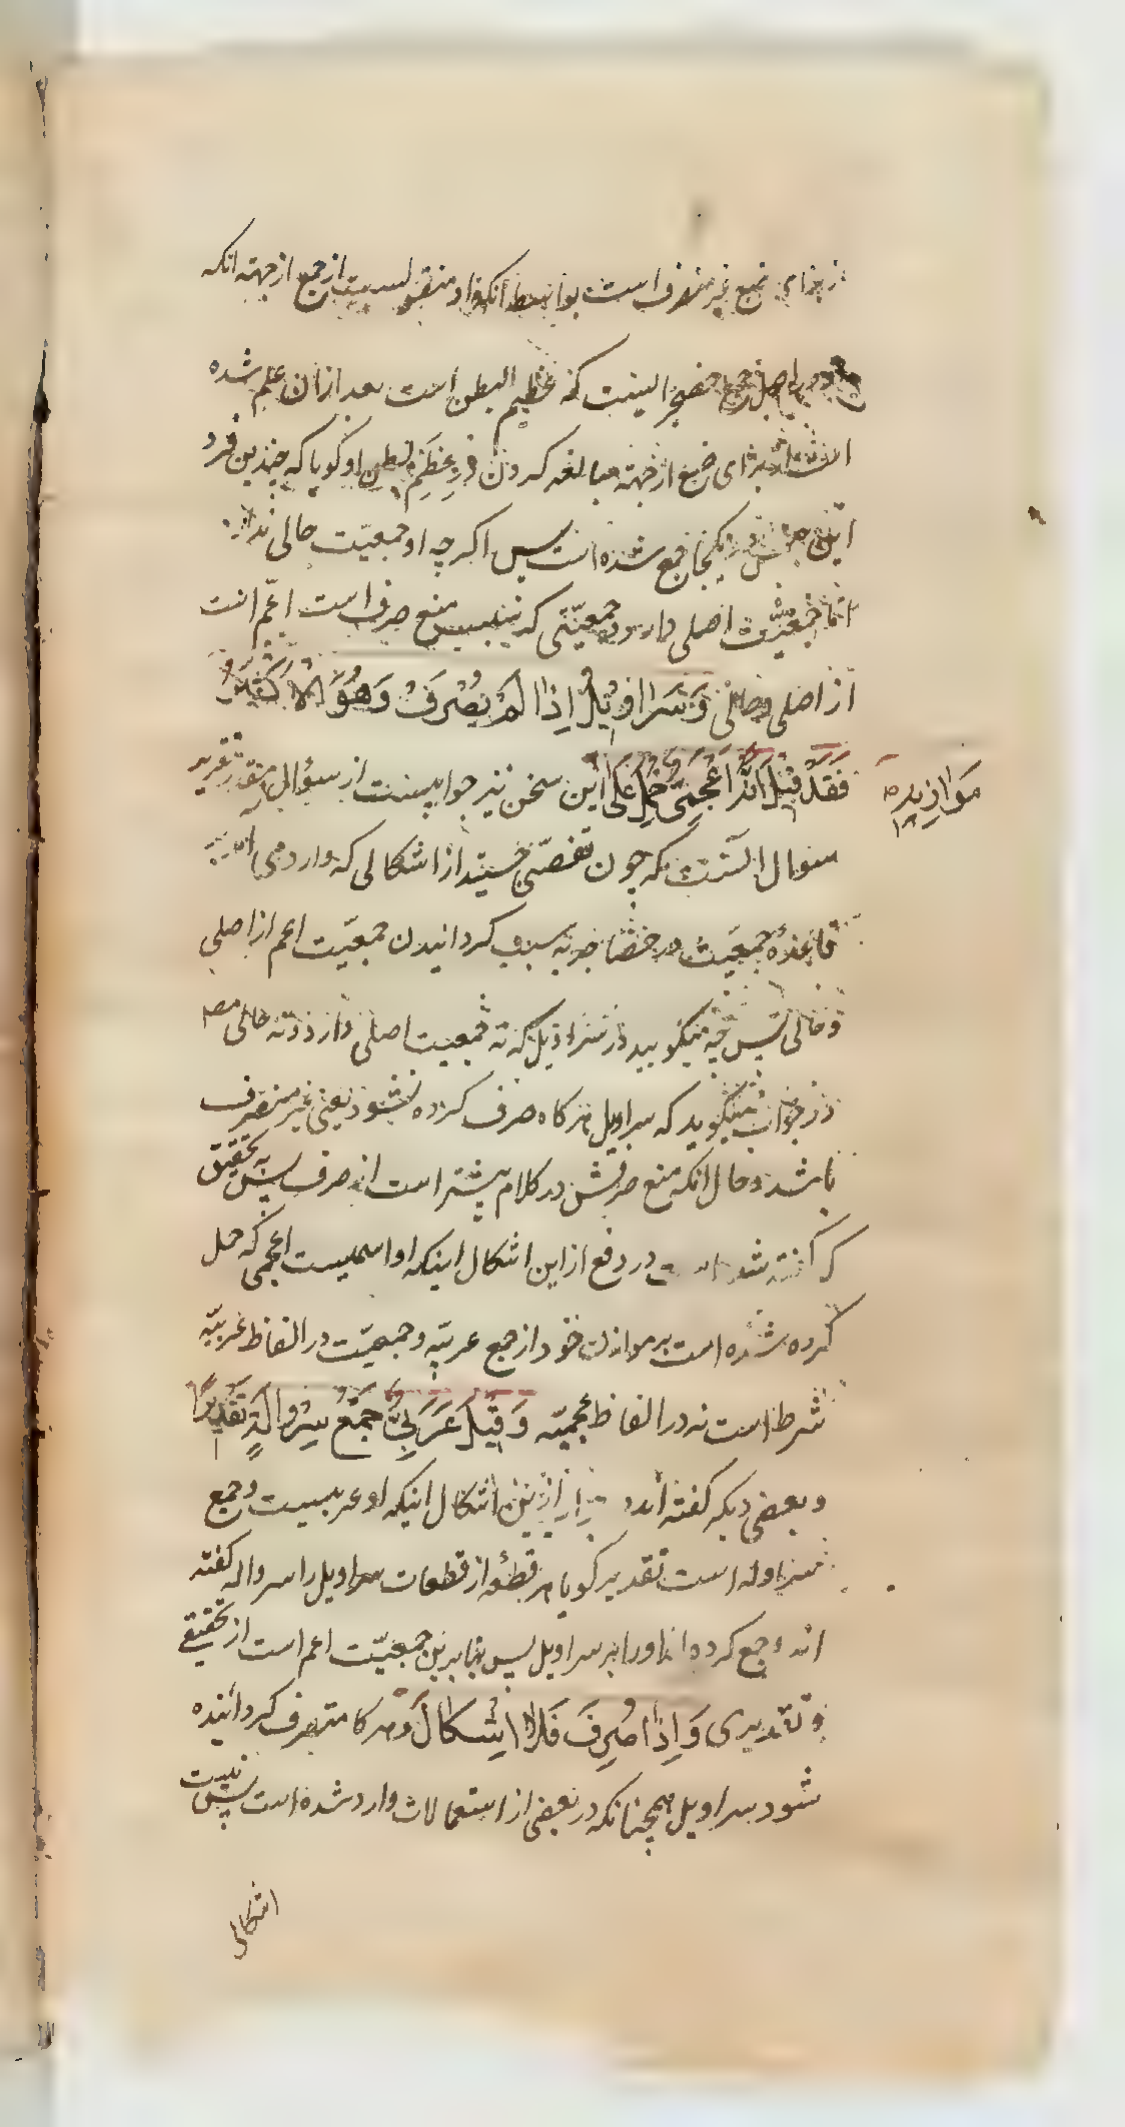 از برای ضبع غیر منصرف است بواسطه آنکه او منقولست از جمع از جهة انکه
در اصل جمع حضجر الیست که عظیم البطن است بعد ازان علم شده
است از برای ضبع از جهة مبالغه کردن در عظم بطن او کویا که چندین فرد
این جنس در یکجا جمع شده است پس اکرچه او جمعیّت حالی ندارد
اما جمعیّت اصلی دارد و جمعیّتی که سبب منع صرف است اعمّ است
از اصلی و حالی وَسَرَاوِیلُ اِذَا لَمْ یُصْرَفْ وَهُوَ الْاَکْثَرُ
فَقَدْ قِیْلَ اَنَّهُ اَعْجَمِیٌّ حُمِلَ عَلَی این سخن نیز جوابیست از سؤال مقدّر تقریر
مَوَازِنِهِ
سؤال آنست که چون تفصّی جستید از اشکالی که وارد می
قاعدهٔ جمعیّت در حضاجر به سبب کردانیدن جمعیّت اعم از اصلی
و حالی پس چه میکویید در سراویل که نه جمعیت اصلی دارد و نه حالی مص
در جواب میکوید که سراویل هرکاه صرف کرده نشود یعنی غیر منصرف
باشد و حال انکه منع صرفش در کلام بیشتر است از صرف پس به تحقیق
که گفته شده است در دفع از این اشکال اینکه او اسمیست اعجمی که حمل
کرده شده است بر موازن خود از جمع عربیّه و جمعیّت در الفاظ عربیّه
شرط است نه در الفاظ عجمیّه وَ قِیْلَ عَرَبِیٌّ جَمْعُ سِرْوَالَةٍ تَقْدِیرًا
و بعضی دیکر کفته اند در از این اشکال اینکه او عربیست و جمع
سرواله است تقدیر کویا هر قطعه از قطعات سراویل را سرواله کفته
اند و جمع کرده اند اورا بر سراویل پس بنابرین جمعیّت اعم است از تحقیقی
و تقدیری وَ اِذَا صُرِفَ فَلَا اِشْکَالَ و هرکا منصرف کردانیده
شود سراویل همچنانکه در بعضی از استعمالات وارد شده است پس نیست
اشکالی